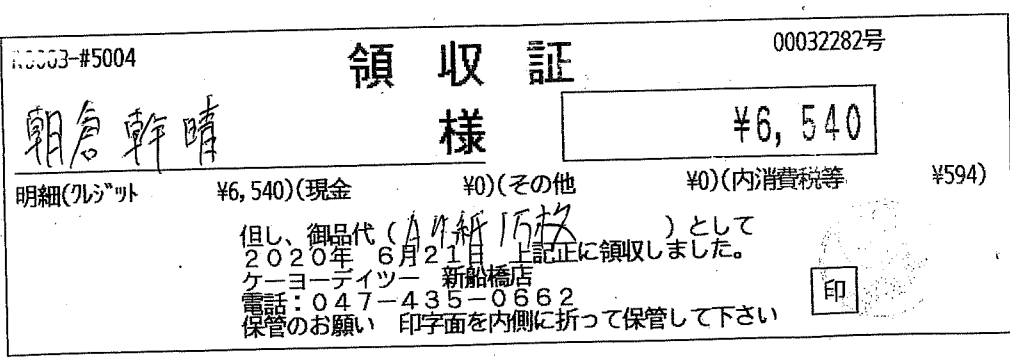 #5004
00032282号
領収証
朝倉幹晴 様
¥6,540
明細(クレジット ¥6,540)(現金 ¥0)(その他 ¥0)(内消費税等 ¥594)
但し、御品代(A4紙1万枚)として
2020年 6月21日 上記正に領収しました。
ケーヨーデイツー 新船橋店
電話:047-435-0662
印
保管のお願い 印字面を内側に折って保管して下さい